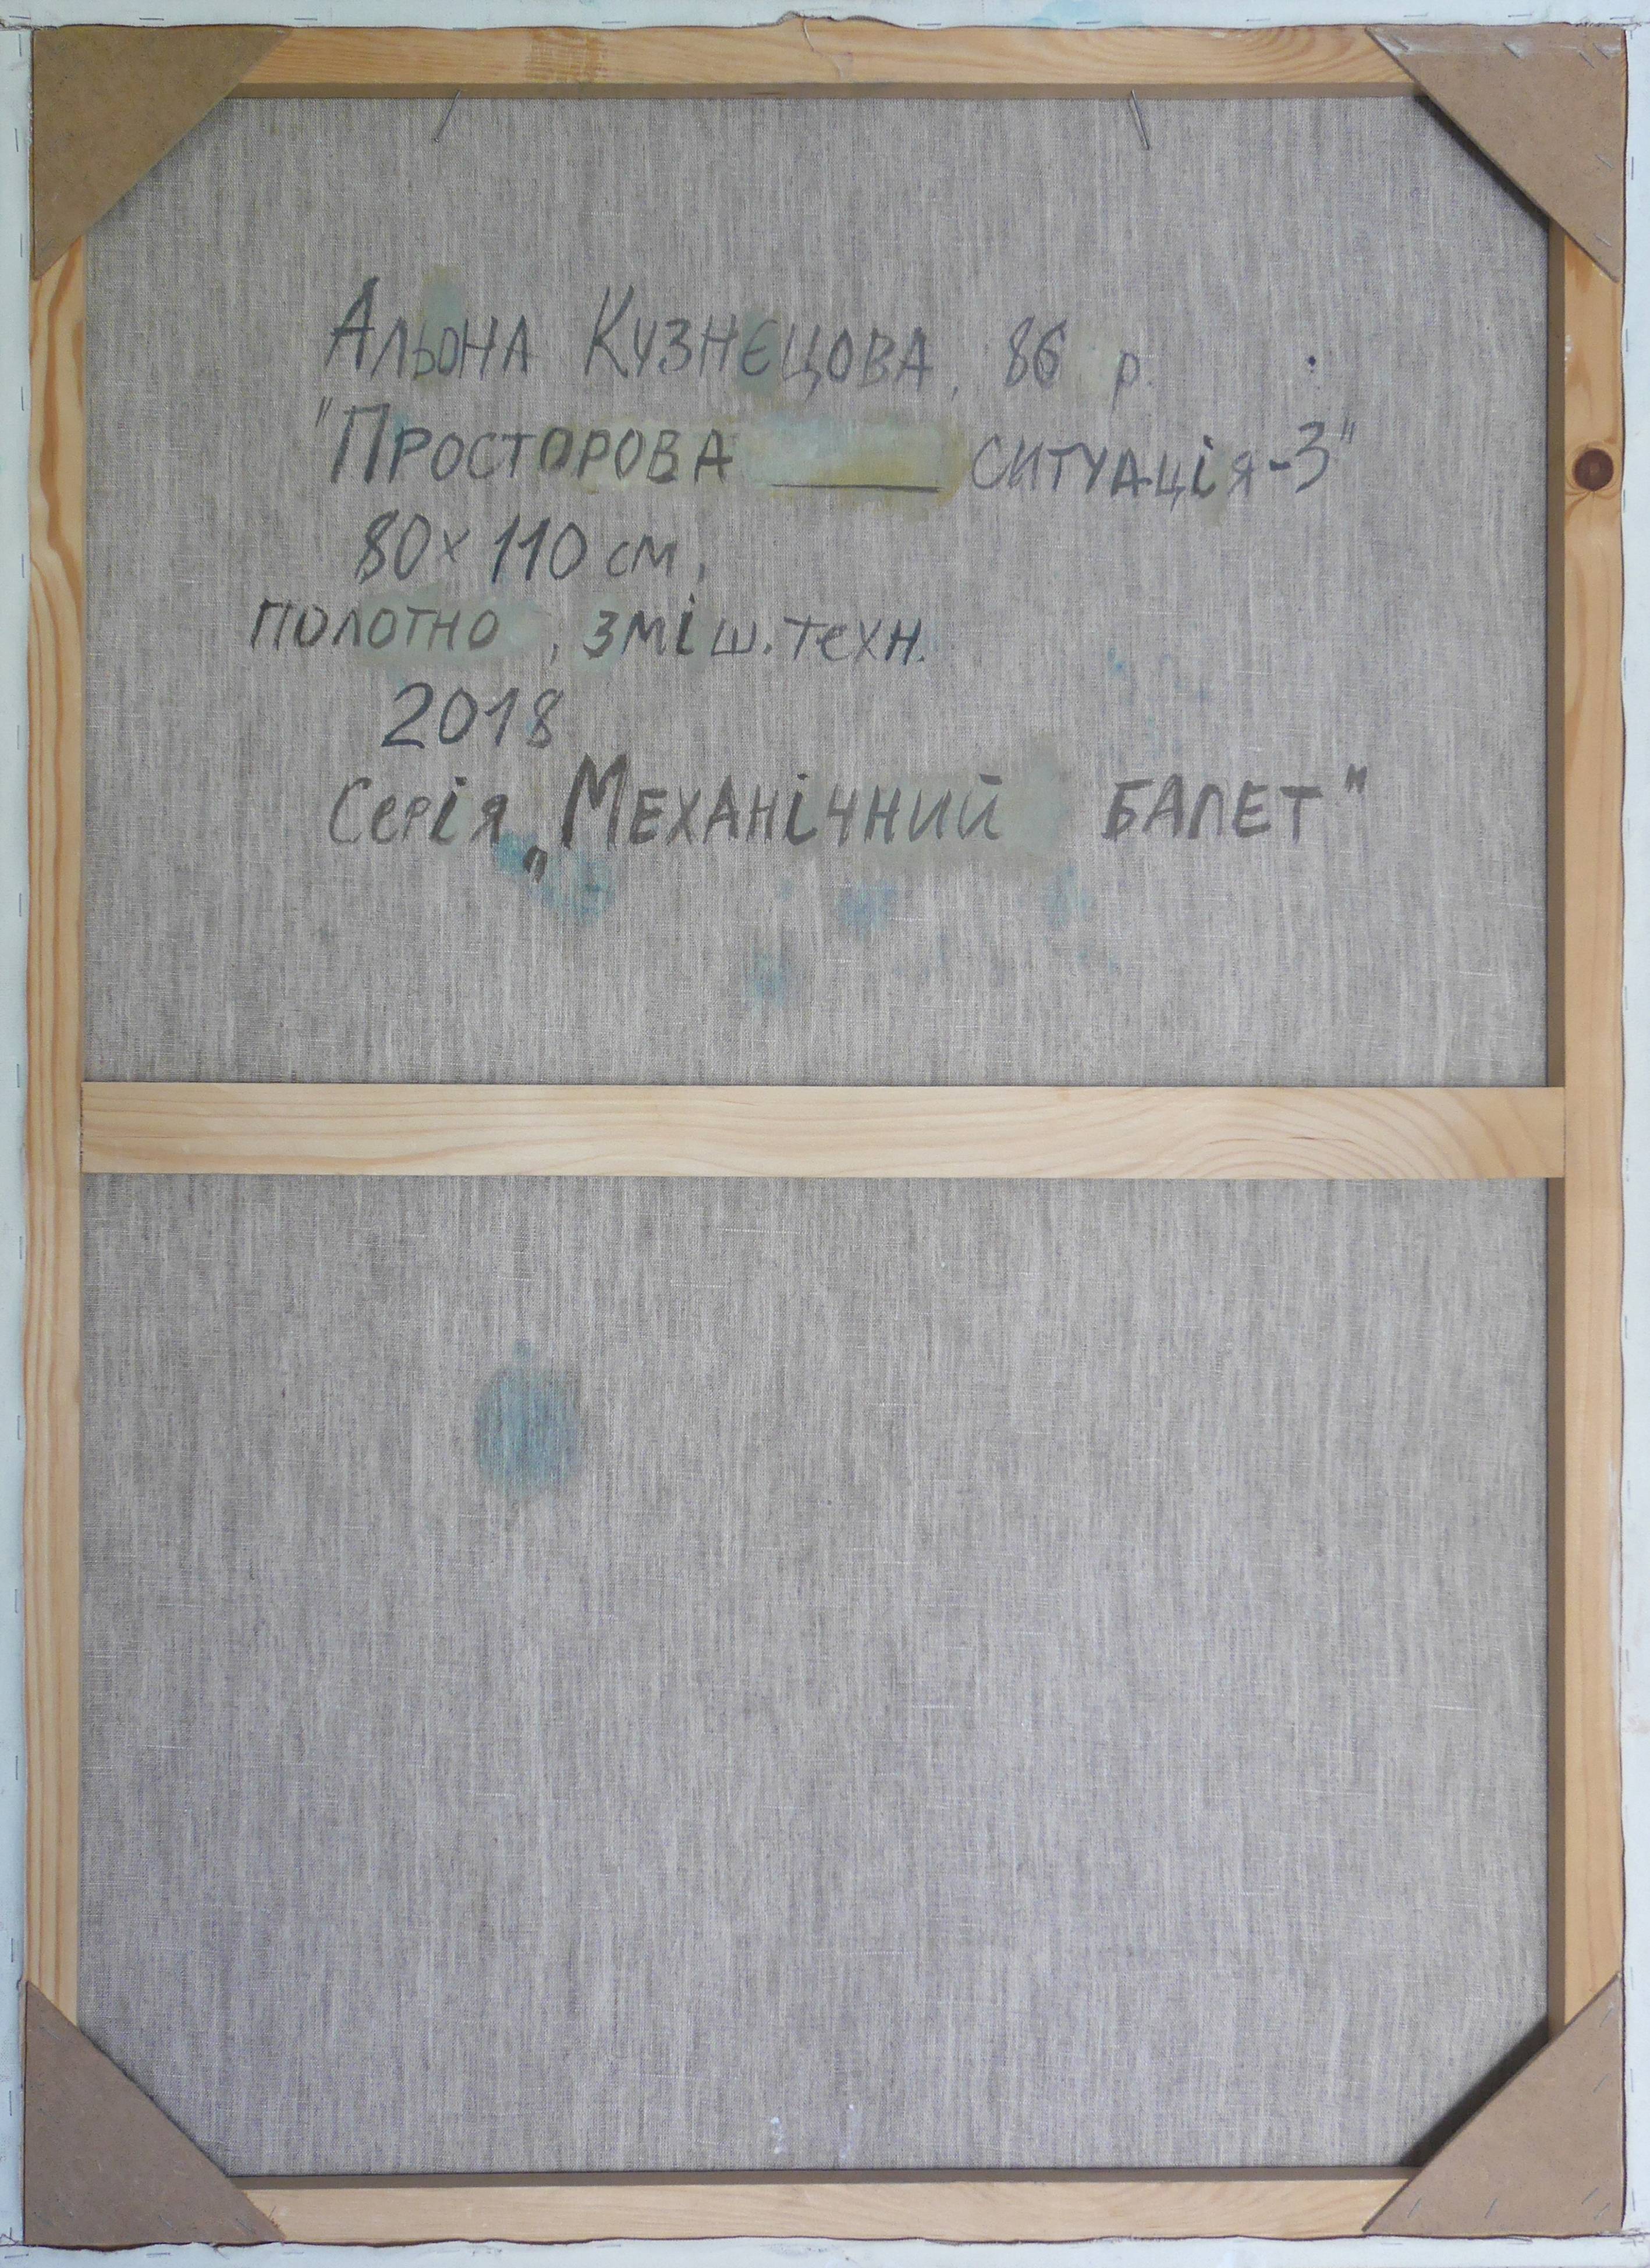 Альона Кузнєцова, 86 р.
"Просторова ____ ситуація-3"
80х110 см,
полотно, зміш. техн.
2018
Серія „Механічний балет"